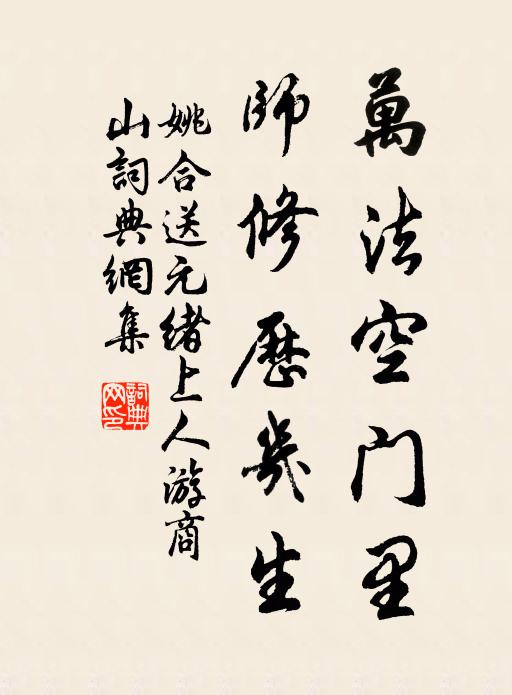 萬法空门里
师修歷幾生
姚合送元绪上人游商
山詞典網集
詞典网印